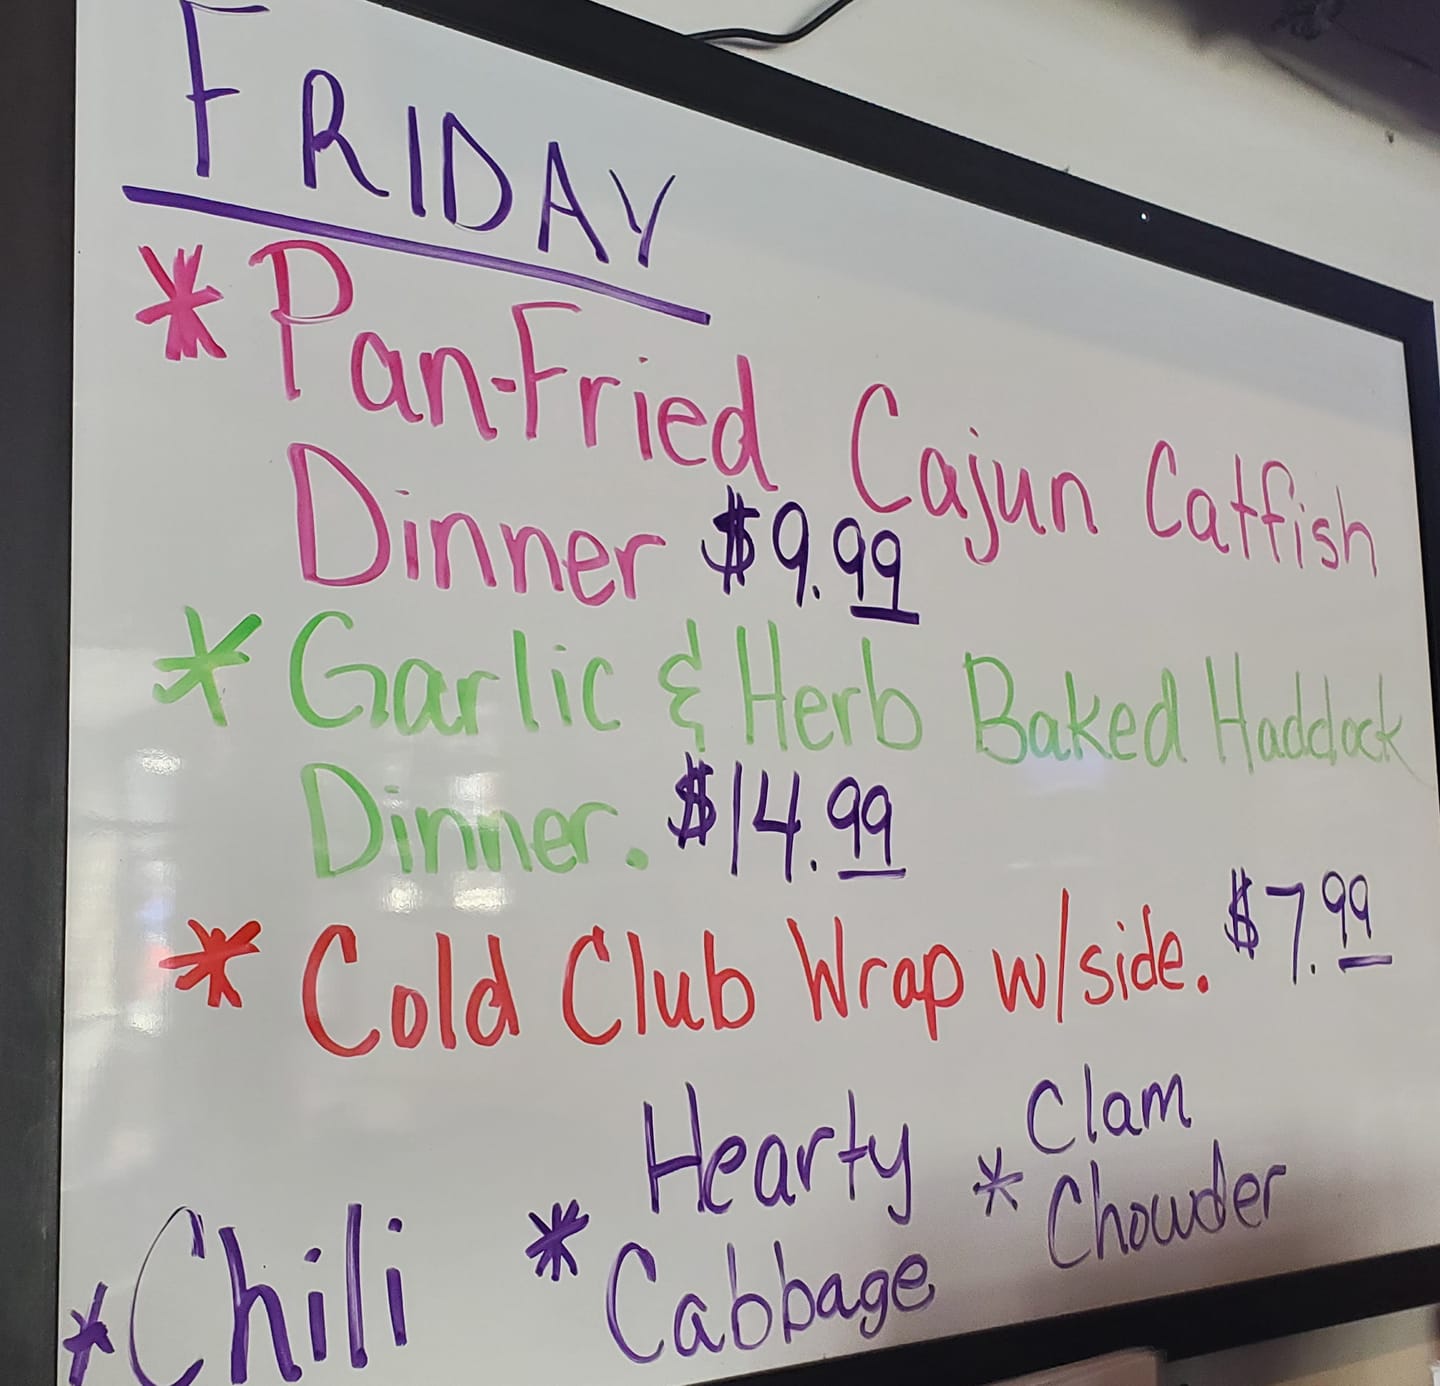 FRIDAY
* Pan-Fried Cajun Catfish
Dinner $9.99
* Garlic & Herb Baked Haddock
Dinner. $14.99
* Cold Club Wrap w/side. $7.99
* Chili
* Hearty
Cabbage
* Clam
Chowder